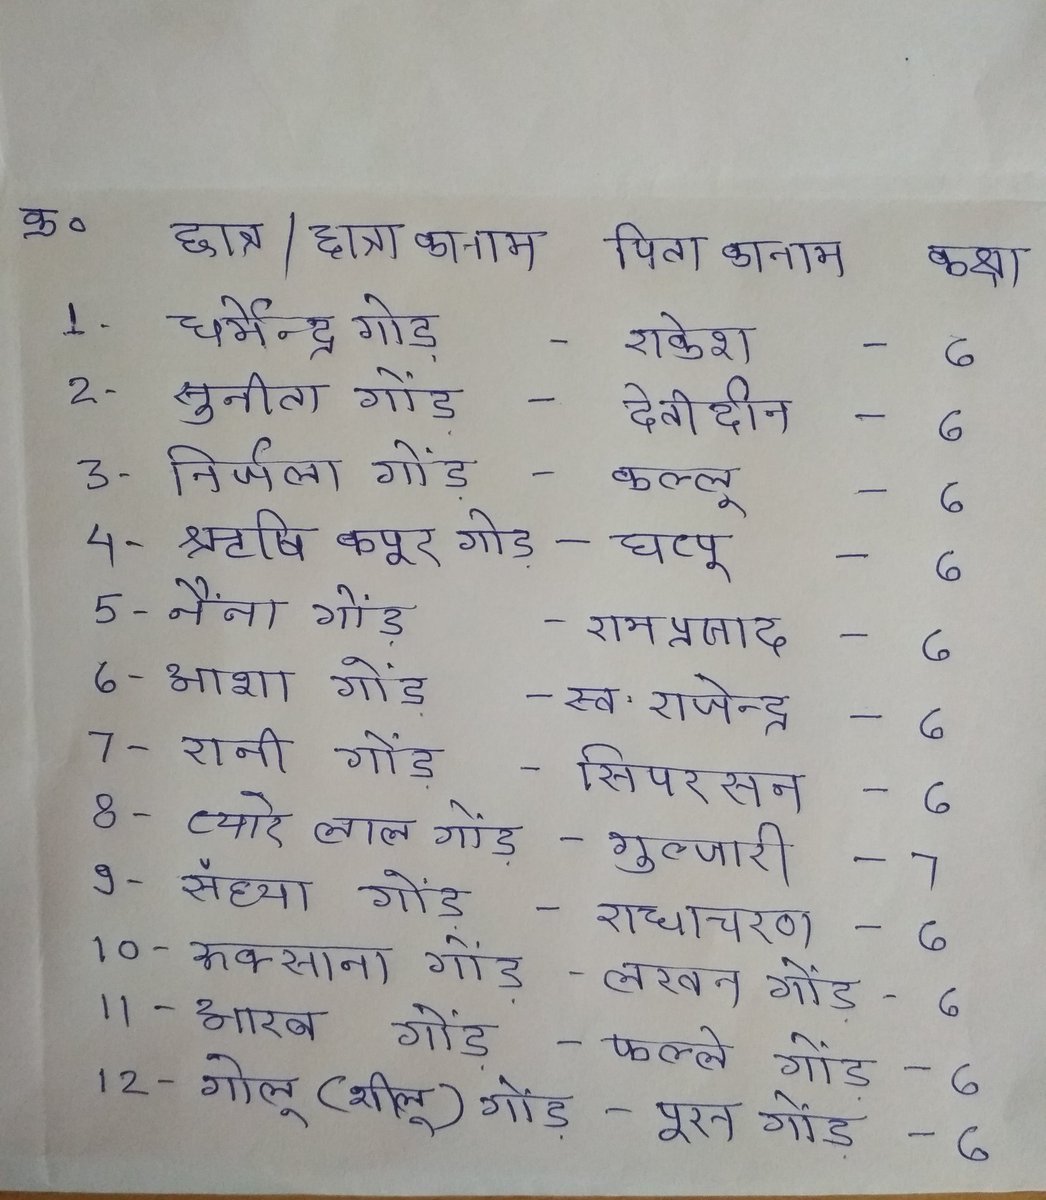 क्र० छात्र / छात्रा का नाम पिता का नाम कक्षा
1- धर्मेन्द्र गोड़ - राकेश - 6
2- सुनीता गोंड़ - देवीदीन - 6
3- निर्जला गोंड़ - कल्लू - 6
4- ऋषि कपूर गोड़ - घप्पू - 6
5- नैंना गोंड़ - रामप्रसाद - 6
6- आशा गोंड़ - स्व. राजेन्द्र - 6
7- रानी गोंड़ - सिपरसन - 6
8- प्यारे लाल गोंड़ - गुल्जारी - 7
9- सँध्या गोंड़ - राधाचरण - 6
10- रुक्साना गोंड़ - लखन गोंड़ - 6
11- आरब गोंड़ - फल्ले गोंड़ - 6
12- गोलू (शीलू) गोंड़ - पूरन गोंड़ - 6